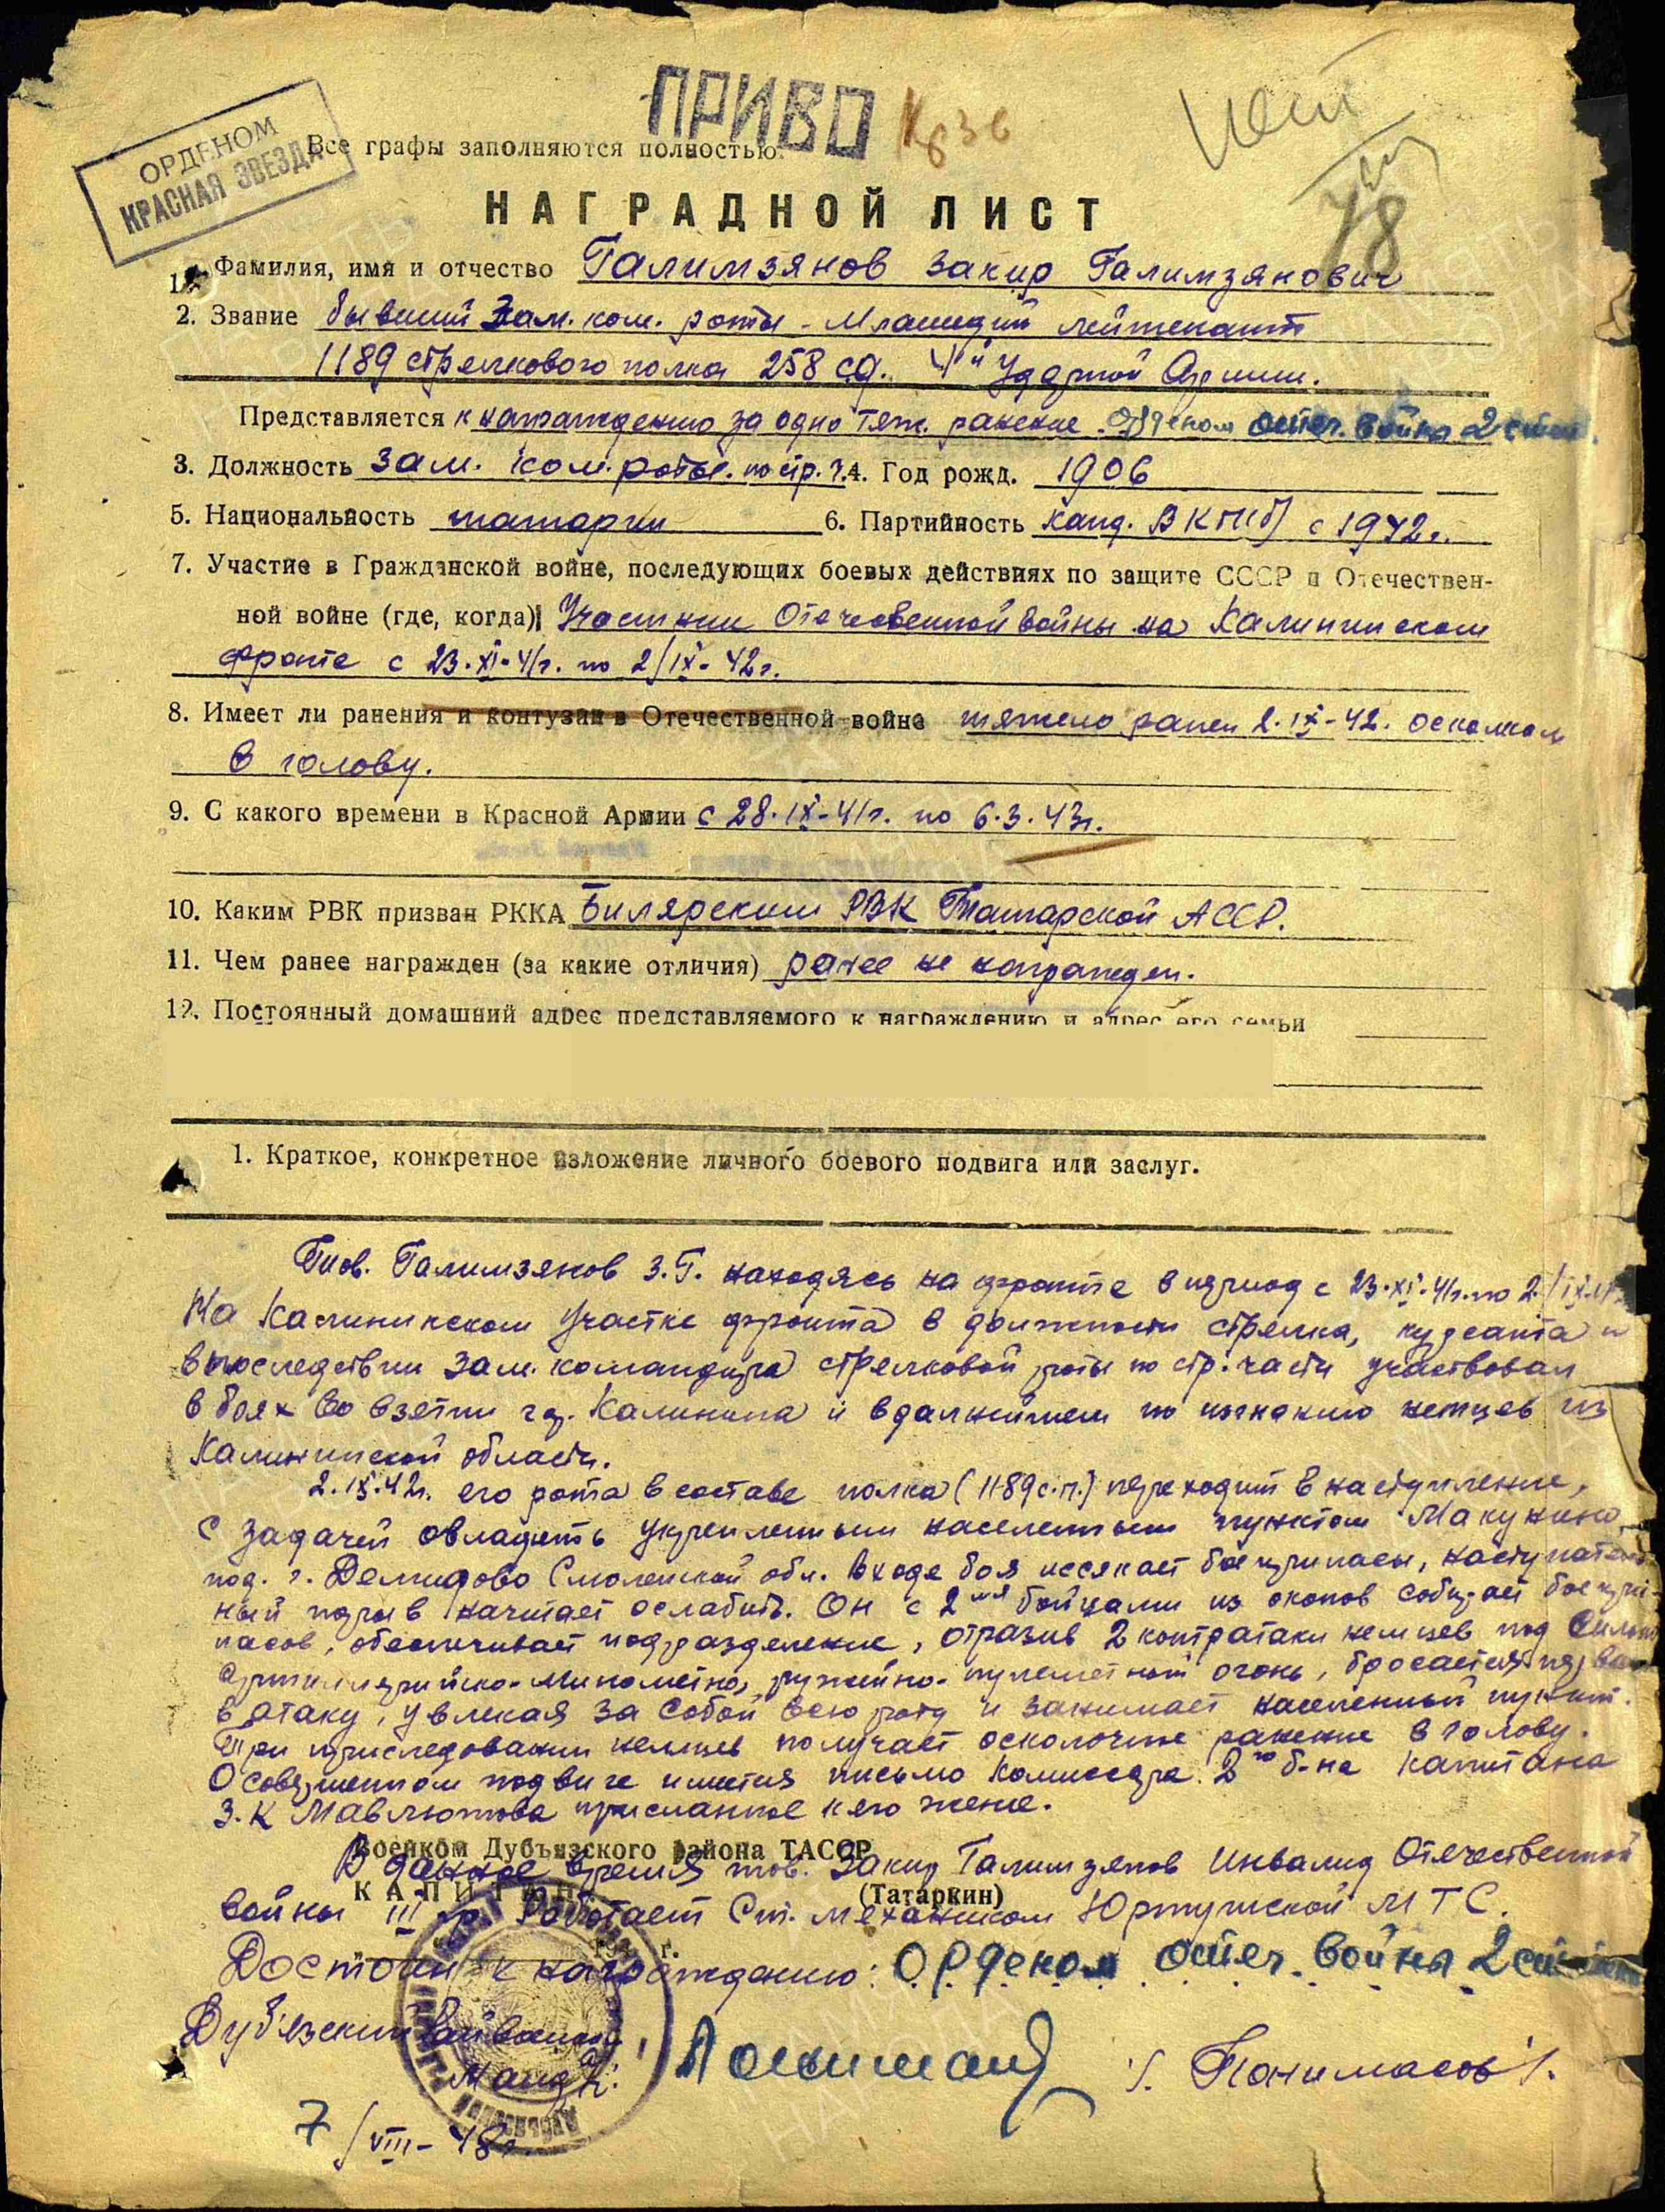 ПРИВО
ОРДЕНОМ
КРАСНАЯ ЗВЕЗДА
Все графы заполняются полностью.
НАГРАДНОЙ ЛИСТ
1. Фамилия, имя и отчество Галимзянов Закир Галимзянович
2. Звание бывший Зам. ком. роты - Младший лейтенант
1189 стрелкового полка 258 сд. 4"й" Ударной Армии.
Представляется к награждению за одно тяж. ранение. Орденом отеч. война 2 степ.
3. Должность зам. ком. роты. по стр. ч. 4. Год рожд. 1906
5. Национальность татарин 6. Партийность канд. ВКП(б) с 1942 г.
7. Участие в Гражданской войне, последующих боевых действиях по защите СССР и Отечествен-
ной войне (где, когда) Участник Отечественной войны на Калининском
фронте с 23.XI-41г. по 2/IX-42г.
8. Имеет ли ранения и контузии в Отечественной войне тяжело ранен 2.IX-42. осколком
в голову.
9. С какого времени в Красной Армии с 28.IX-41г. по 6.3.43г.
10. Каким РВК призван РККА Билярским РВК Татарской АССР.
11. Чем ранее награжден (за какие отличия) ранее не награжден.
12. Постоянный домашний адрес представляемого к награждению и адрес его семьи
1. Краткое, конкретное изложение личного боевого подвига или заслуг.
Тов. Галимзянов З.Г. находясь на фронте в период с 23.XI-41г. по 2/IX-42
На Калининском участке фронта в должности стрелка, курсанта и
впоследствии зам. командира стрелковой роты по стр. части участвовал
в боях во взятии гор. Калинина и в дальнейшем по изгнанию немцев из
Калининской области.
2.IX.42г. его рота в составе полка (1189 с.п.) переходит в наступление,
с задачей овладеть укрепленным населенным пунктом Макунино
под. г. Демидово Смоленской обл. В ходе боя иссякает боеприпасы, наступатель-
ный порыв начинает ослабить. Он с 2мя бойцами из окопов собирает боепри-
пасов, обеспечивает подразделение, отразив 2 контратаки немцев под сильный
артиллерийско-минометно, ружейно-пулеметный огонь, бросается первым
в атаку, увлекая за собой всю роту и занимает населенный пункт.
При преследовании немцев получает осколочное ранение в голову.
О совершенном подвиге имеется письмо комиссара 2го б-на капитана
З.К Мавлютова присланное к его жене.
Военком Дубъязского района ТАССР
В данное время тов. Закир Галимзянов инвалид Отечественной
КАПИТАН (Татаркин)
войны III гр. Работает Ст. механиком Юртушской МТС.
194 г.
Достоин к награждению: Орденом отеч. война 2 степени
Дубъязский Райвоенком
Майор: / Понимасов /.
7/VIII-48г.